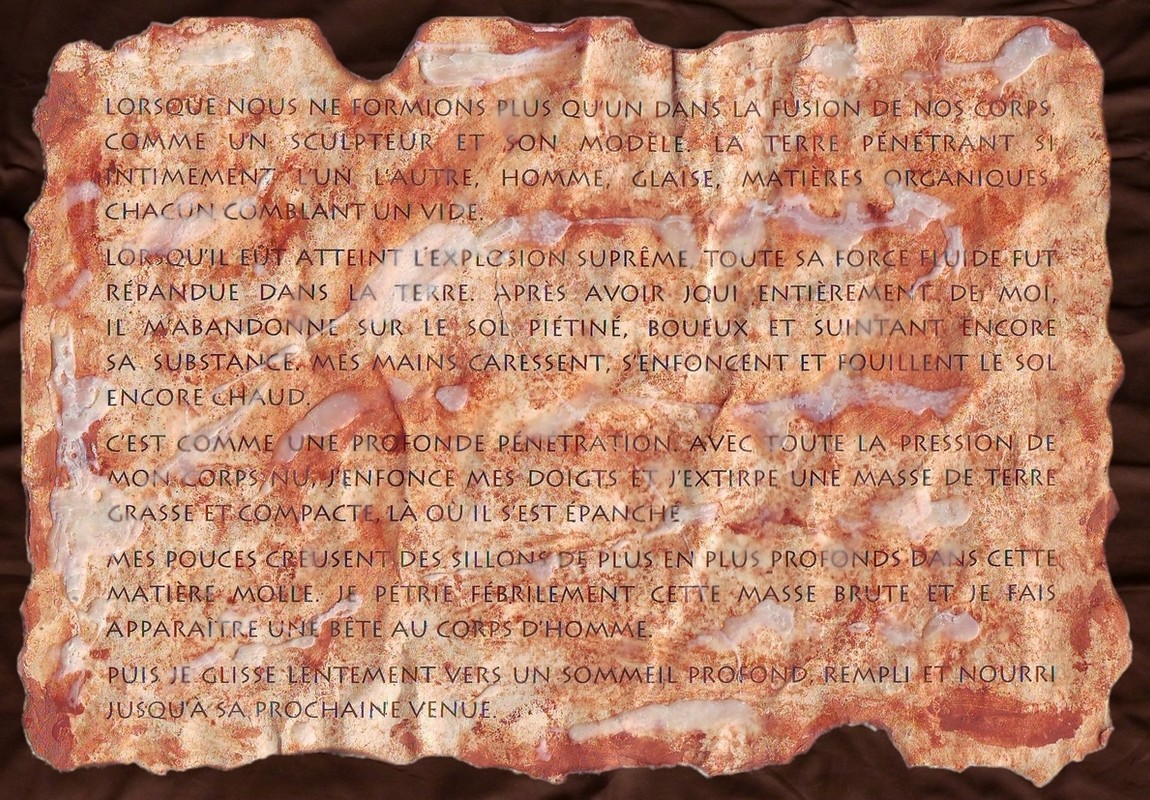 LORSQUE NOUS NE FORMIONS PLUS QU'UN DANS LA FUSION DE NOS CORPS,
COMME UN SCULPTEUR ET SON MODÈLE. LA TERRE PÉNÉTRANT SI
INTIMEMENT L'UN L'AUTRE, HOMME, GLAISE, MATIÈRES ORGANIQUES,
CHACUN COMBLANT UN VIDE.
LORSQU'IL EÛT ATTEINT L'EXPLOSION SUPRÊME, TOUTE SA FORCE FLUIDE FUT
RÉPANDUE DANS LA TERRE. APRÈS AVOIR JOUI ENTIÈREMENT DE MOI,
IL M'ABANDONNE SUR LE SOL PIÉTINÉ, BOUEUX ET SUINTANT ENCORE
SA SUBSTANCE. MES MAINS CARESSENT, S'ENFONCENT ET FOUILLENT LE SOL
ENCORE CHAUD.
C'EST COMME UNE PROFONDE PÉNÉTRATION. AVEC TOUTE LA PRESSION DE
MON CORPS NU, J'ENFONCE MES DOIGTS ET J'EXTIRPE UNE MASSE DE TERRE
GRASSE ET COMPACTE, LÀ OÙ IL S'EST ÉPANCHÉ
MES POUCES CREUSENT DES SILLONS DE PLUS EN PLUS PROFONDS DANS CETTE
MATIÈRE MOLLE. JE PÉTRIE FÉBRILEMENT CETTE MASSE BRUTE ET JE FAIS
APPARAÎTRE UNE BÊTE AU CORPS D'HOMME.
PUIS JE GLISSE LENTEMENT VERS UN SOMMEIL PROFOND, REMPLI ET NOURRI
JUSQU'À SA PROCHAINE VENUE.